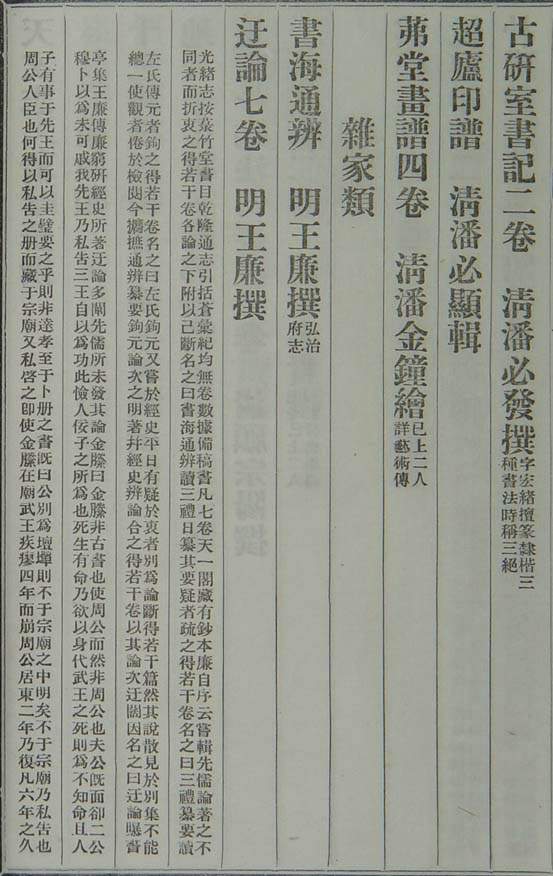 古研室書記二卷　清潘必發撰字宏緒擅篆隸楷三
種書法時稱三絕
超廬印譜　清潘必顯輯
茀堂畫譜四卷　清潘金鐘繪已上二人
詳藝術傳
雜家類
書海通辨　明王廉撰弘治
府志
光緒志按菉竹堂書目乾隆通志引括蒼彙紀均無卷數據備稿書凡七卷天一閣藏有鈔本廉自序云嘗輯先儒論著之不
同者而折衷之得若干卷各論之下附以己斷名之曰書海通辨讀三禮日纂其要疑者疏之得若干卷名之曰三禮纂要讀
左氏傳元者鉤之得若干卷名之曰左氏鉤元又嘗於經史平日有疑於衷者別爲論斷得若干篇然其說散見於別集不能
總一使觀者倦於檢閱今摭通辨纂要鉤元論次之明著幷經史辨論合之得若干卷以其論次迂闊因名之曰迂論曝書
迂論七卷　明王廉撰
亭集王廉傳廉窮硏經史所著迂論多闡先儒所未發其論金縢曰金縢非古書也使周公而然非周公也夫公旣面卻二公
穆卜以爲未可戚我先王乃私告三王自以爲功此憸人佞子之所爲也死生有命乃欲以身代武王之死則爲不知命且人
子有事于先王而可以圭璧要之乎則非達孝至于卜册之書旣曰公別爲壇墠則不于宗廟之中明矣不于宗廟乃私告也
周公人臣也何得以私告之册而藏于宗廟又私啓之卽使金縢在廟武王疾瘳四年而崩周公居東二年乃復凡六年之久